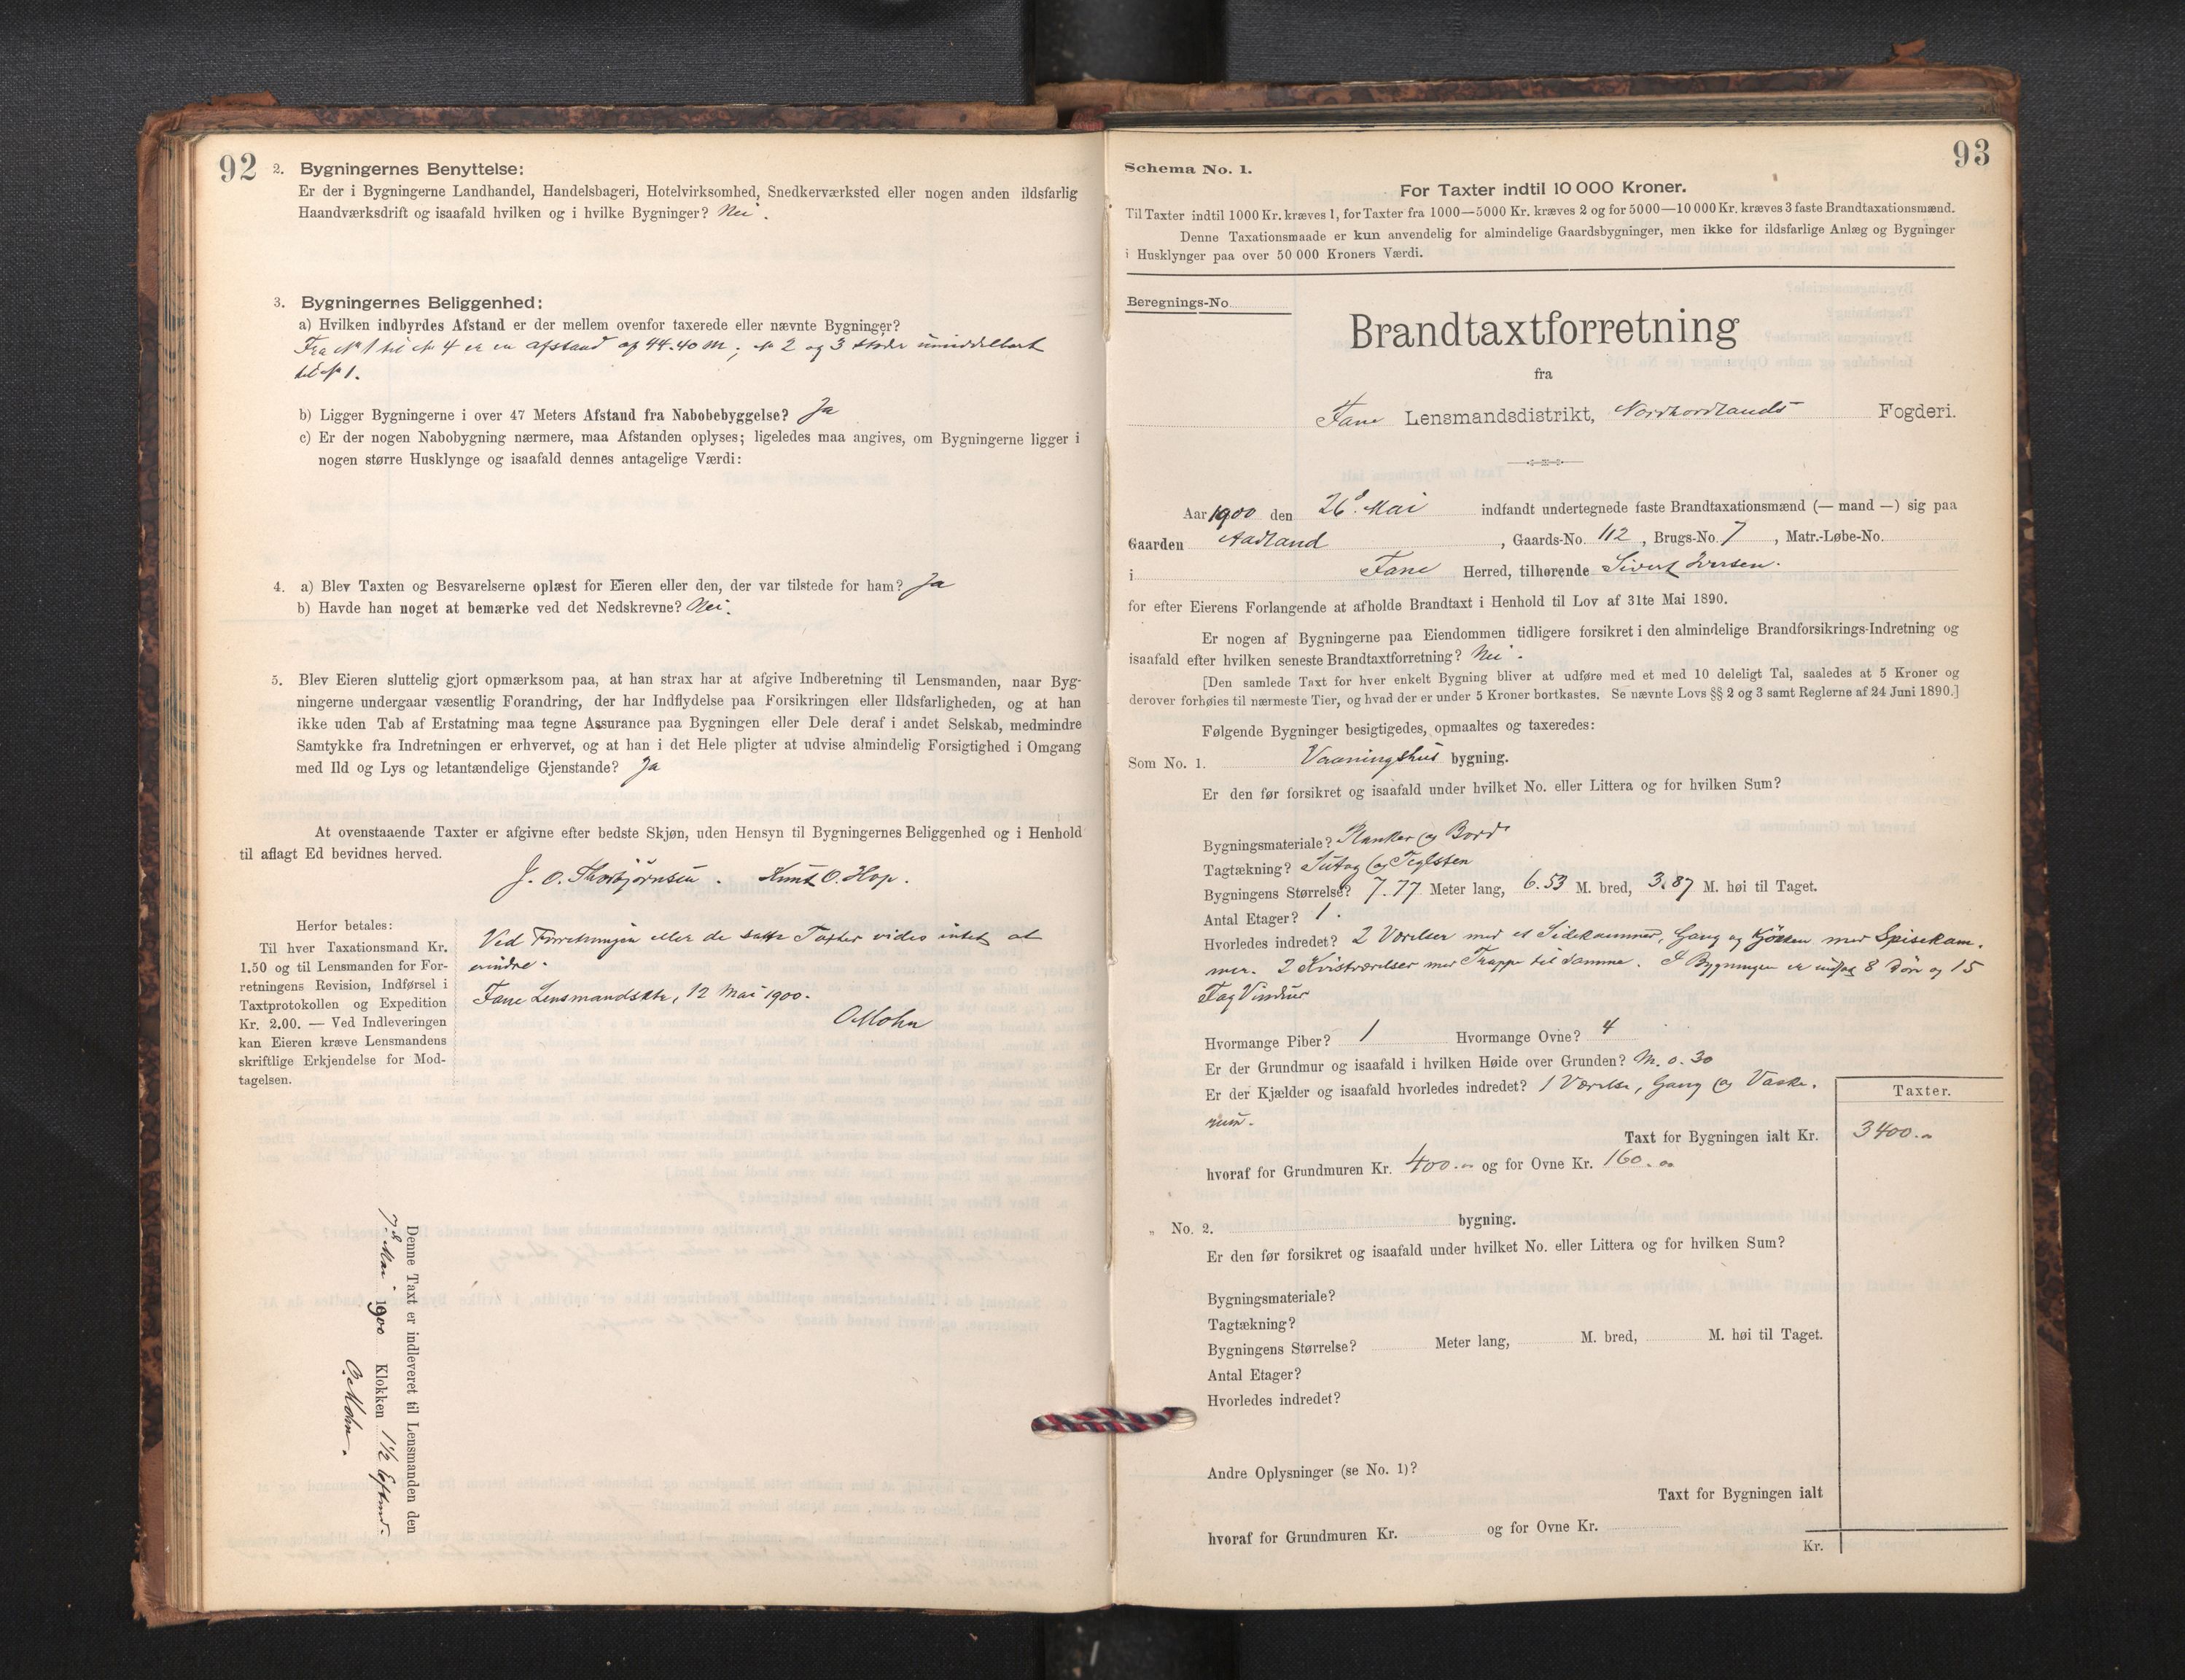 92
2. Bygningernes Benyttelse:
Er der i Bygningerne Landhandel, Handelsbageri, Hotelvirksomhed, Snedkerværksted eller nogen anden ildsfarlig
Haandværksdrift og isaafald hvilken og i hvilke Bygninger? Nei.
3. Bygningernes Beliggenhed:
a) Hvilken indbyrdes Afstand er der mellem ovenfor taxerede eller nævnte Bygninger?
Fra No 1 til No 4 er en afstand af 44.40 M; No 2 og 3 støder umiddelbart
til No 1.
b) Ligger Bygningerne i over 47 Meters Afstand fra Nabobebyggelse? Ja
c) Er der nogen Nabobygning nærmere, maa Afstanden oplyses; ligeledes maa angives, om Bygningerne ligger i
nogen større Husklynge og isaafald dennes antagelige Værdi:
4. a) Blev Taxten og Besvarelserne oplæst for Eieren eller den, der var tilstede for ham? Ja
b) Havde han noget at bemærke ved det Nedskrevne? Nei.
5. Blev Eieren sluttelig gjort opmærksom paa, at han strax har at afgive Indberetning til Lensmanden, naar Byg-
ningerne undergaar væsentlig Forandring, der har Indflydelse paa Forsikringen eller Ildsfarligheden, og at han
ikke uden Tab af Erstatning maa tegne Assurance paa Bygningen eller Dele deraf i andet Selskab, medmindre
Samtykke fra Indretningen er erhvervet, og at han i det Hele pligter at udvise almindelig Forsigtighed i Omgang
med Ild og Lys og letantændelige Gjenstande? Ja
At ovenstaaende Taxter er afgivne efter bedste Skjøn, uden Hensyn til Bygningernes Beliggenhed og i Henhold
til aflagt Ed bevidnes herved.
J. O. Thorbjörnsen. Knut O. Hop.
Herfor betales:
Til hver Taxationsmand Kr.
1.50 og til Lensmanden for For-
retningens Revision, Indførsel i
Taxtprotokollen og Expedition
Kr. 2.00. — Ved Indleveringen
kan Eieren kræve Lensmandens
skriftlige Erkjendelse for Mod-
tagelsen.
Ved Forretningen eller de satte Taxter vides intet at
erindre.
Fane Lensmandsktr, 12 Mai 1900.
O Mohn
Denne Taxt er indleveret til Lensmanden den
7de Mai 1900 Klokken 1½ Eftmd.
O. Mohn.
93
Schema No. 1.
For Taxter indtil 10 000 Kroner.
Til Taxter indtil 1000 Kr. kræves 1, for Taxter fra 1000—5000 Kr. kræves 2 og for 5000—10 000 Kr. kræves 3 faste Brandtaxationsmænd.
Denne Taxationsmaade er kun anvendelig for almindelige Gaardsbygninger, men ikke for ildsfarlige Anlæg og Bygninger
i Husklynger paa over 50 000 Kroners Værdi.
Beregnings-No
Brandtaxtforretning
fra
Fane Lensmandsdistrikt, Nordhordlands Fogderi.
Aar 1900 den 26d. Mai indfandt undertegnede faste Brandtaxationsmænd (— mand —) sig paa
Gaarden Aadland, Gaards-No. 112, Brugs-No. 7, Matr.-Løbe-No.
i Fane Herred, tilhørende Sivert Iversen.
for efter Eierens Forlangende at afholde Brandtaxt i Henhold til Lov af 31te Mai 1890.
Er nogen af Bygningerne paa Eiendommen tidligere forsikret i den almindelige Brandforsikrings-Indretning og
isaafald efter hvilken seneste Brandtaxtforretning? Nei.
[Den samlede Taxt for hver enkelt Bygning bliver at udføre med et med 10 deleligt Tal, saaledes at 5 Kroner og
derover forhøies til nærmeste Tier, og hvad der er under 5 Kroner bortkastes. Se nævnte Lovs §§ 2 og 3 samt Reglerne af 24 Juni 1890.]
Følgende Bygninger besigtigedes, opmaaltes og taxeredes:
Som No. 1. Vaaningshus bygning.
Er den før forsikret og isaafald under hvilket No. eller Littera og for hvilken Sum?
Bygningsmateriale? Planker og Bord
Tagtækning? Sutag og Teglsten
Bygningens Størrelse? 7.77 Meter lang, 6.53 M. bred, 3.87 M. høi til Taget.
Antal Etager? 1.
Hvorledes indredet? 2 Værelser med et Sidekammer, Gang og Kjökken med Spisekam-
mer. 2 Kvistværelser med Trappe til samme. I Bygningen er indsat 8 Döre og 15
Fag Vinduer
Hvormange Piber? 1 Hvormange Ovne? 4
Er der Grundmur og isaafald i hvilken Høide over Grunden? M. 0.30
Er der Kjælder og isaafald hvorledes indredet? 1 Værelse, Gang og Vaske-
rum.
Taxter.
Taxt for Bygningen ialt Kr. 3400.00
hvoraf for Grundmuren Kr. 400.00 og for Ovne Kr. 160.00
„ No. 2. bygning.
Er den før forsikret og isaafald under hvilket No. eller Littera og for hvilken Sum?
Bygningsmateriale?
Tagtækning?
Bygningens Størrelse? Meter lang, M. bred, M. høi til Taget.
Antal Etager?
Hvorledes indredet?
Andre Oplysninger (se No. 1)?
Taxt for Bygningen ialt
hvoraf for Grundmuren Kr. og for Ovne Kr.
Kr.